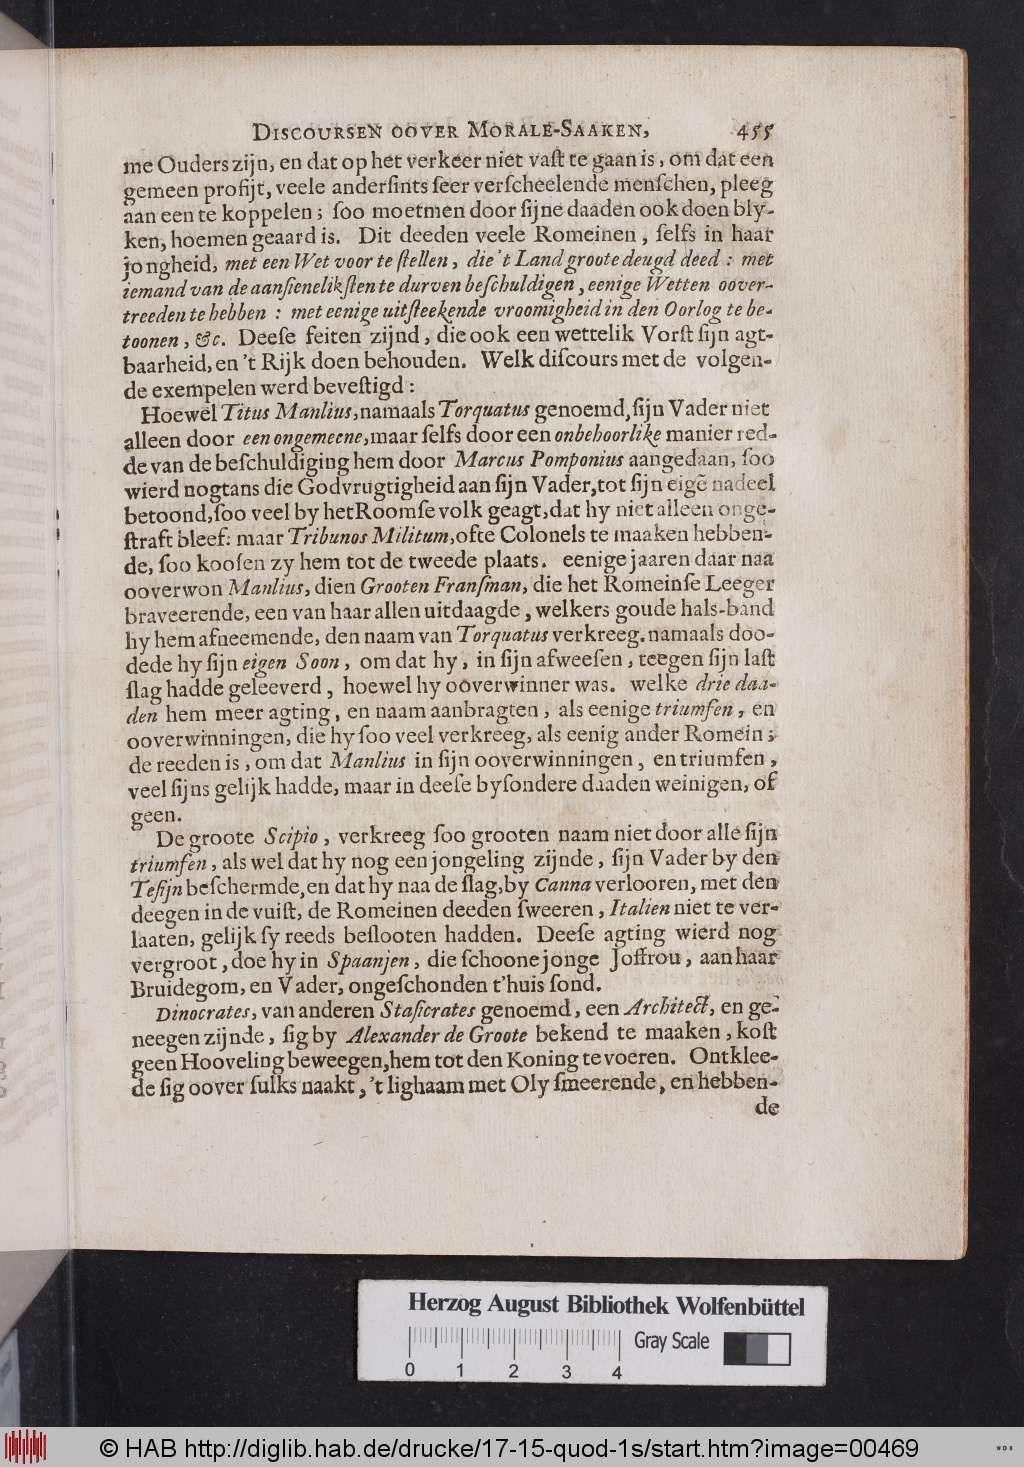 DISCOURSEN OOVER MORALE-SAAKEN, 455
me Ouders zijn, en dat op het verkeer niet vaſt te gaan is, om dat een
gemeen profijt, veele anderſints ſeer verſcheelende menſchen, pleeg
aan een te koppelen; ſoo moetmen door ſijne daaden ook doen bly-
ken, hoemen geaard is. Dit deeden veele Romeinen, ſelfs in haar
jongheid, met een Wet voor te ſtellen, die 't Land groote deugd deed: met
iemand van de aanſienelikſten te durven beſchuldigen, eenige Wetten oover-
treeden te hebben: met eenige uitſteekende vroomigheid in den Oorlog te be-
toonen, &c. Deeſe feiten zijnd, die ook een wettelik Vorſt ſijn agt-
baarheid, en 't Rijk doen behouden. Welk diſcours met de volgen-
de exempelen werd beveſtigd:
Hoewel Titus Manlius, namaals Torquatus genoemd, ſijn Vader niet
alleen door een ongemeene, maar ſelfs door een onbehoorlike manier red-
de van de beſchuldiging hem door Marcus Pomponius aangedaan, ſoo
wierd nogtans die Godvrugtigheid aan ſijn Vader, tot ſijn eigẽ nadeel
betoond, ſoo veel by het Roomſe volk geagt, dat hy niet alleen onge-
ſtraft bleef: maar Tribunos Militum, ofte Colonels te maaken hebben-
de, ſoo kooſen zy hem tot de tweede plaats. eenige jaaren daar naa
ooverwon Manlius, dien Grooten Franſman, die het Romeinſe Leeger
braveerende, een van haar allen uitdaagde, welkers goude hals-band
hy hem afneemende, den naam van Torquatus verkreeg. namaals doo-
dede hy ſijn eigen Soon, om dat hy, in ſijn afweeſen, teegen ſijn laſt
ſlag hadde geleeverd, hoewel hy ooverwinner was. welke drie daa-
den hem meer agting, en naam aanbragten, als eenige triumfen, en
ooverwinningen, die hy ſoo veel verkreeg, als eenig ander Romein;
de reeden is, om dat Manlius in ſijn ooverwinningen, en triumfen,
veel ſijns gelijk hadde, maar in deeſe byſondere daaden weinigen, of
geen.
De groote Scipio, verkreeg ſoo grooten naam niet door alle ſijn
triumfen, als wel dat hy nog een jongeling zijnde, ſijn Vader by den
Teſijn beſchermde, en dat hy naa de ſlag, by Canna verlooren, met den
deegen in de vuiſt, de Romeinen deeden ſweeren, Italien niet te ver-
laaten, gelijk ſy reeds beſlooten hadden. Deeſe agting wierd nog
vergroot, doe hy in Spaanjen, die ſchoone jonge Joffrou, aan haar
Bruidegom, en Vader, ongeſchonden t'huis ſond.
Dinocrates, van anderen Staſicrates genoemd, een Architect, en ge-
neegen zijnde, ſig by Alexander de Groote bekend te maaken, koſt
geen Hooveling beweegen, hem tot den Koning te voeren. Ontklee-
de ſig oover ſulks naakt, 't lighaam met Oly ſmeerende, en hebben-
de
Herzog August Bibliothek Wolfenbüttel
0 1 2 3 4
Gray Scale
© HAB http://diglib.hab.de/drucke/17-15-quod-1s/start.htm?image=00469